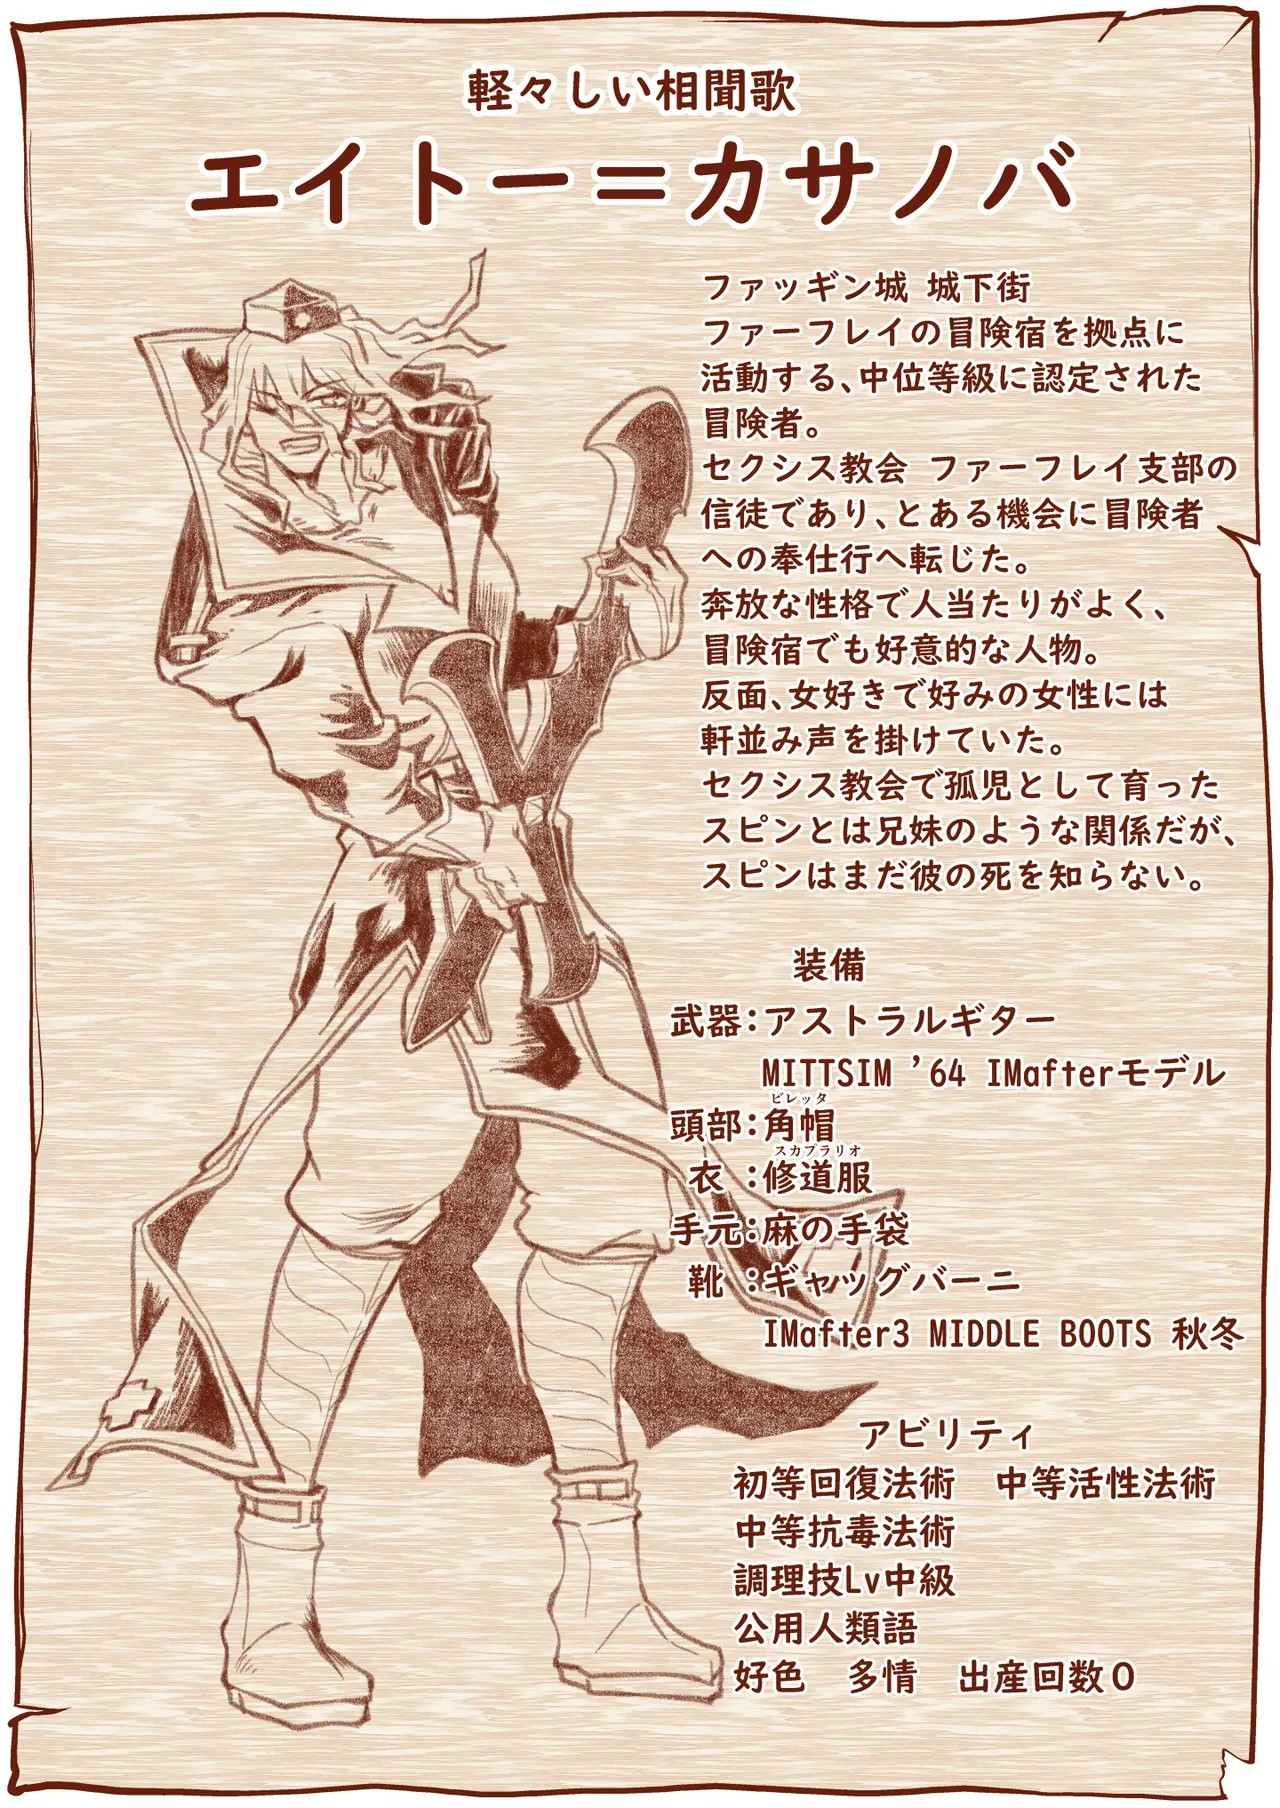 軽々しい相聞歌
エイトー＝カサノバ
ファッギン城 城下街
ファーフレイの冒険宿を拠点に
活動する、中位等級に認定された
冒険者。
セクシス教会 ファーフレイ支部の
信徒であり、とある機会に冒険者
への奉仕行へ転じた。
奔放な性格で人当たりがよく、
冒険宿でも好意的な人物。
反面、女好きで好みの女性には
軒並み声を掛けていた。
セクシス教会で孤児として育った
スピンとは兄妹のような関係だが、
スピンはまだ彼の死を知らない。
装備
武器：アストラルギター
MITTSIM ’64 IMafterモデル
ビレッタ
頭部：角帽
スカプラリオ
衣：修道服
手元：麻の手袋
靴：ギャッグバーニ
IMafter3 MIDDLE BOOTS 秋冬
アビリティ
初等回復法術　中等活性法術
中等抗毒法術
調理技Lv中級
公用人類語
好色　多情　出産回数０